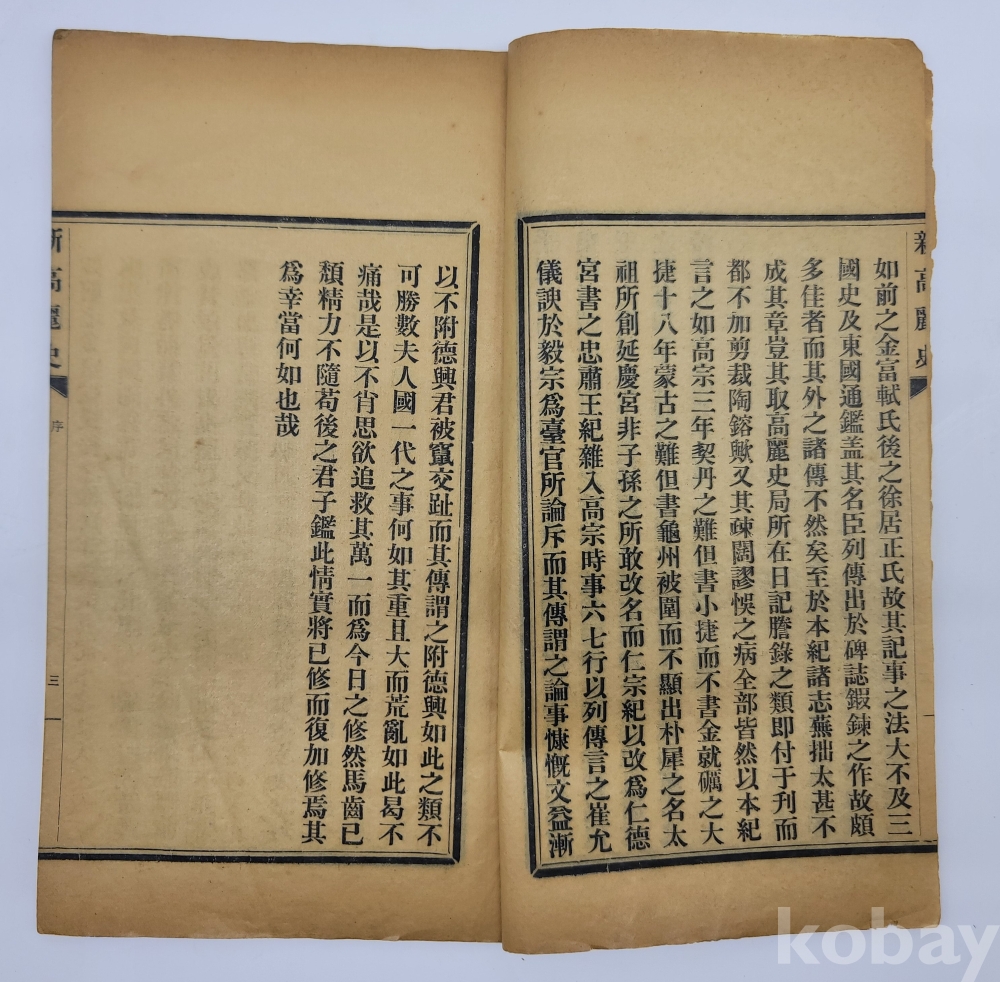 新高麗史
如前之金富軾氏後之徐居正氏故其記事之法大不及三
國史及東國通鑑盖其名臣列傳出於碑誌鍜鍊之作故頗
多佳者而其外之諸傳不然矣至於本紀諸志蕪拙太甚不
成其章豈其取高麗史局所在日記謄錄之類即付于刊而
都不加剪裁陶鎔歟又其疎闊謬悞之病全部皆然以本紀
言之如高宗三年契丹之難但書小捷而不書金就礪之大
捷十八年蒙古之難但書龜州被圍而不顯出朴犀之名太
祖所創延慶宮非子孫之所敢改名而仁宗紀以改爲仁德
宮書之忠肅王紀雜入高宗時事六七行以列傳言之崔允
儀諛於毅宗爲臺官所論斥而其傳謂之論事慷慨文益漸
以不附德興君被竄交趾而其傳謂之附德興如此之類不
可勝數夫人國一代之事何如其重且大而荒亂如此曷不
痛哉是以不肖思欲追救其萬一而爲今日之修然馬齒已
頹精力不隨苟後之君子鑑此情實將已修而復加修焉其
爲幸當何如也哉
新高麗史
序
三
kobay